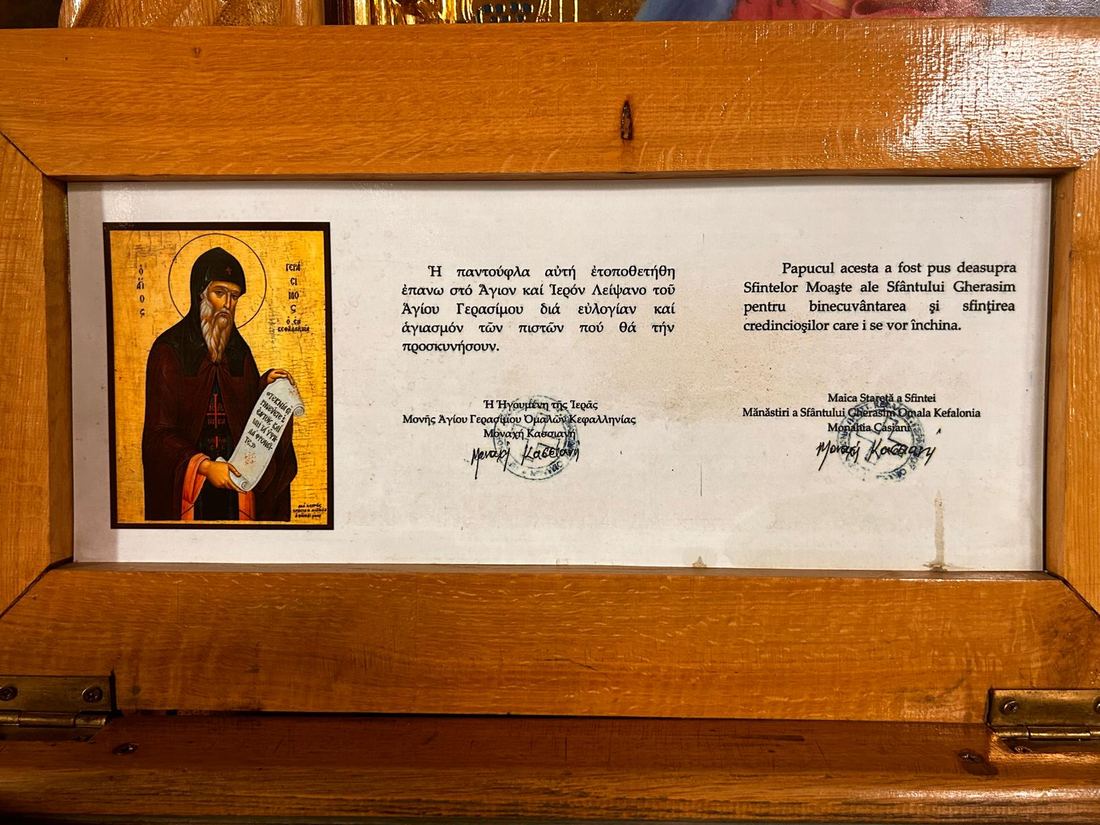 Ὁ ἍΓΙΟΣ
ΓΕΡΆ
ΣΙ
ΜΟΣ
Ὁ ἘΝ
ΚΕΦΑΛΛΗΝΙΑ
Ἡ παντούφλα αὐτή ἐτοποθετήθη
ἐπάνω στό Ἅγιον καί Ἱερόν Λείψανο τοῦ
Ἁγίου Γερασίμου διά εὐλογίαν καί
ἁγιασμόν τῶν πιστῶν πού θά τήν
προσκυνήσουν.
Ἡ Ἡγουμένη τῆς Ἱερᾶς
Μονῆς Ἁγίου Γερασίμου Ὁμαλῶν Κεφαλληνίας
Μοναχή Κασσιανή
Μοναχή Κασσιανή
Papucul acesta a fost pus deasupra
Sfintelor Moaşte ale Sfântului Gherasim
pentru binecuvântarea şi sfinţirea
credincioşilor care i se vor închina.
Maica Stareţă a Sfintei
Mănăstiri a Sfântului Gherasim Omala Kefalonia
Monahia Casiani
Μοναχή Κασσιανή